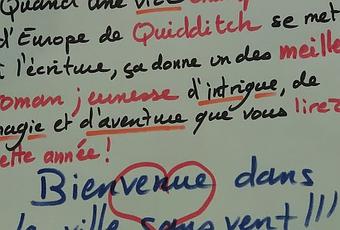 Quand une vice-champ
d'Europe de Quidditch se met
à l'écriture, ça donne un des meille
roman jeunesse d'intrigue, de
magie et d'aventure que vous lirez
cette année !
Bienvenue dans
la ville sans vent !!!